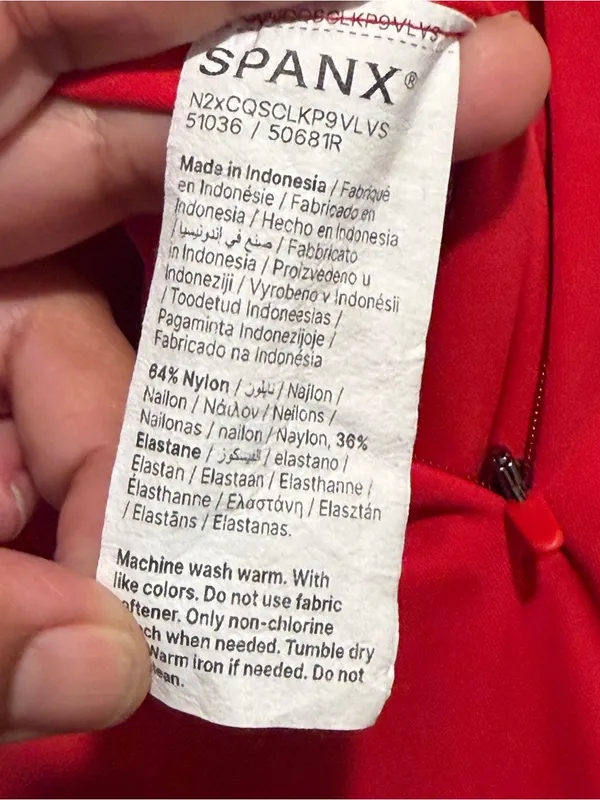 SPANX®
N2xCQSCLKP9VLVS
51036 / 50681R
Made in Indonesia / Fabriqué
en Indonésie / Fabricado en
Indonesia / Hecho en Indonesia
/ صنع في إندونيسيا / Fabbricato
in Indonesia / Proizvedeno u
Indoneziji / Vyrobeno v Indonésii
/ Toodetud Indoneesias /
Pagaminta Indonezijoje /
Fabricado na Indonésia
64% Nylon / نايلون / Najlon /
Nailon / Νάιλον / Neilons /
Nailonas / nailon / Naylon, 36%
Elastane / / elastano /
Elastan / Elastaan / Elasthanne /
Élasthanne / Ελαστάνη / Elasztán
/ Elastāns / Elastanas.
Machine wash warm. With
like colors. Do not use fabric
softener. Only non-chlorine
when needed. Tumble dry
Warm iron if needed. Do not